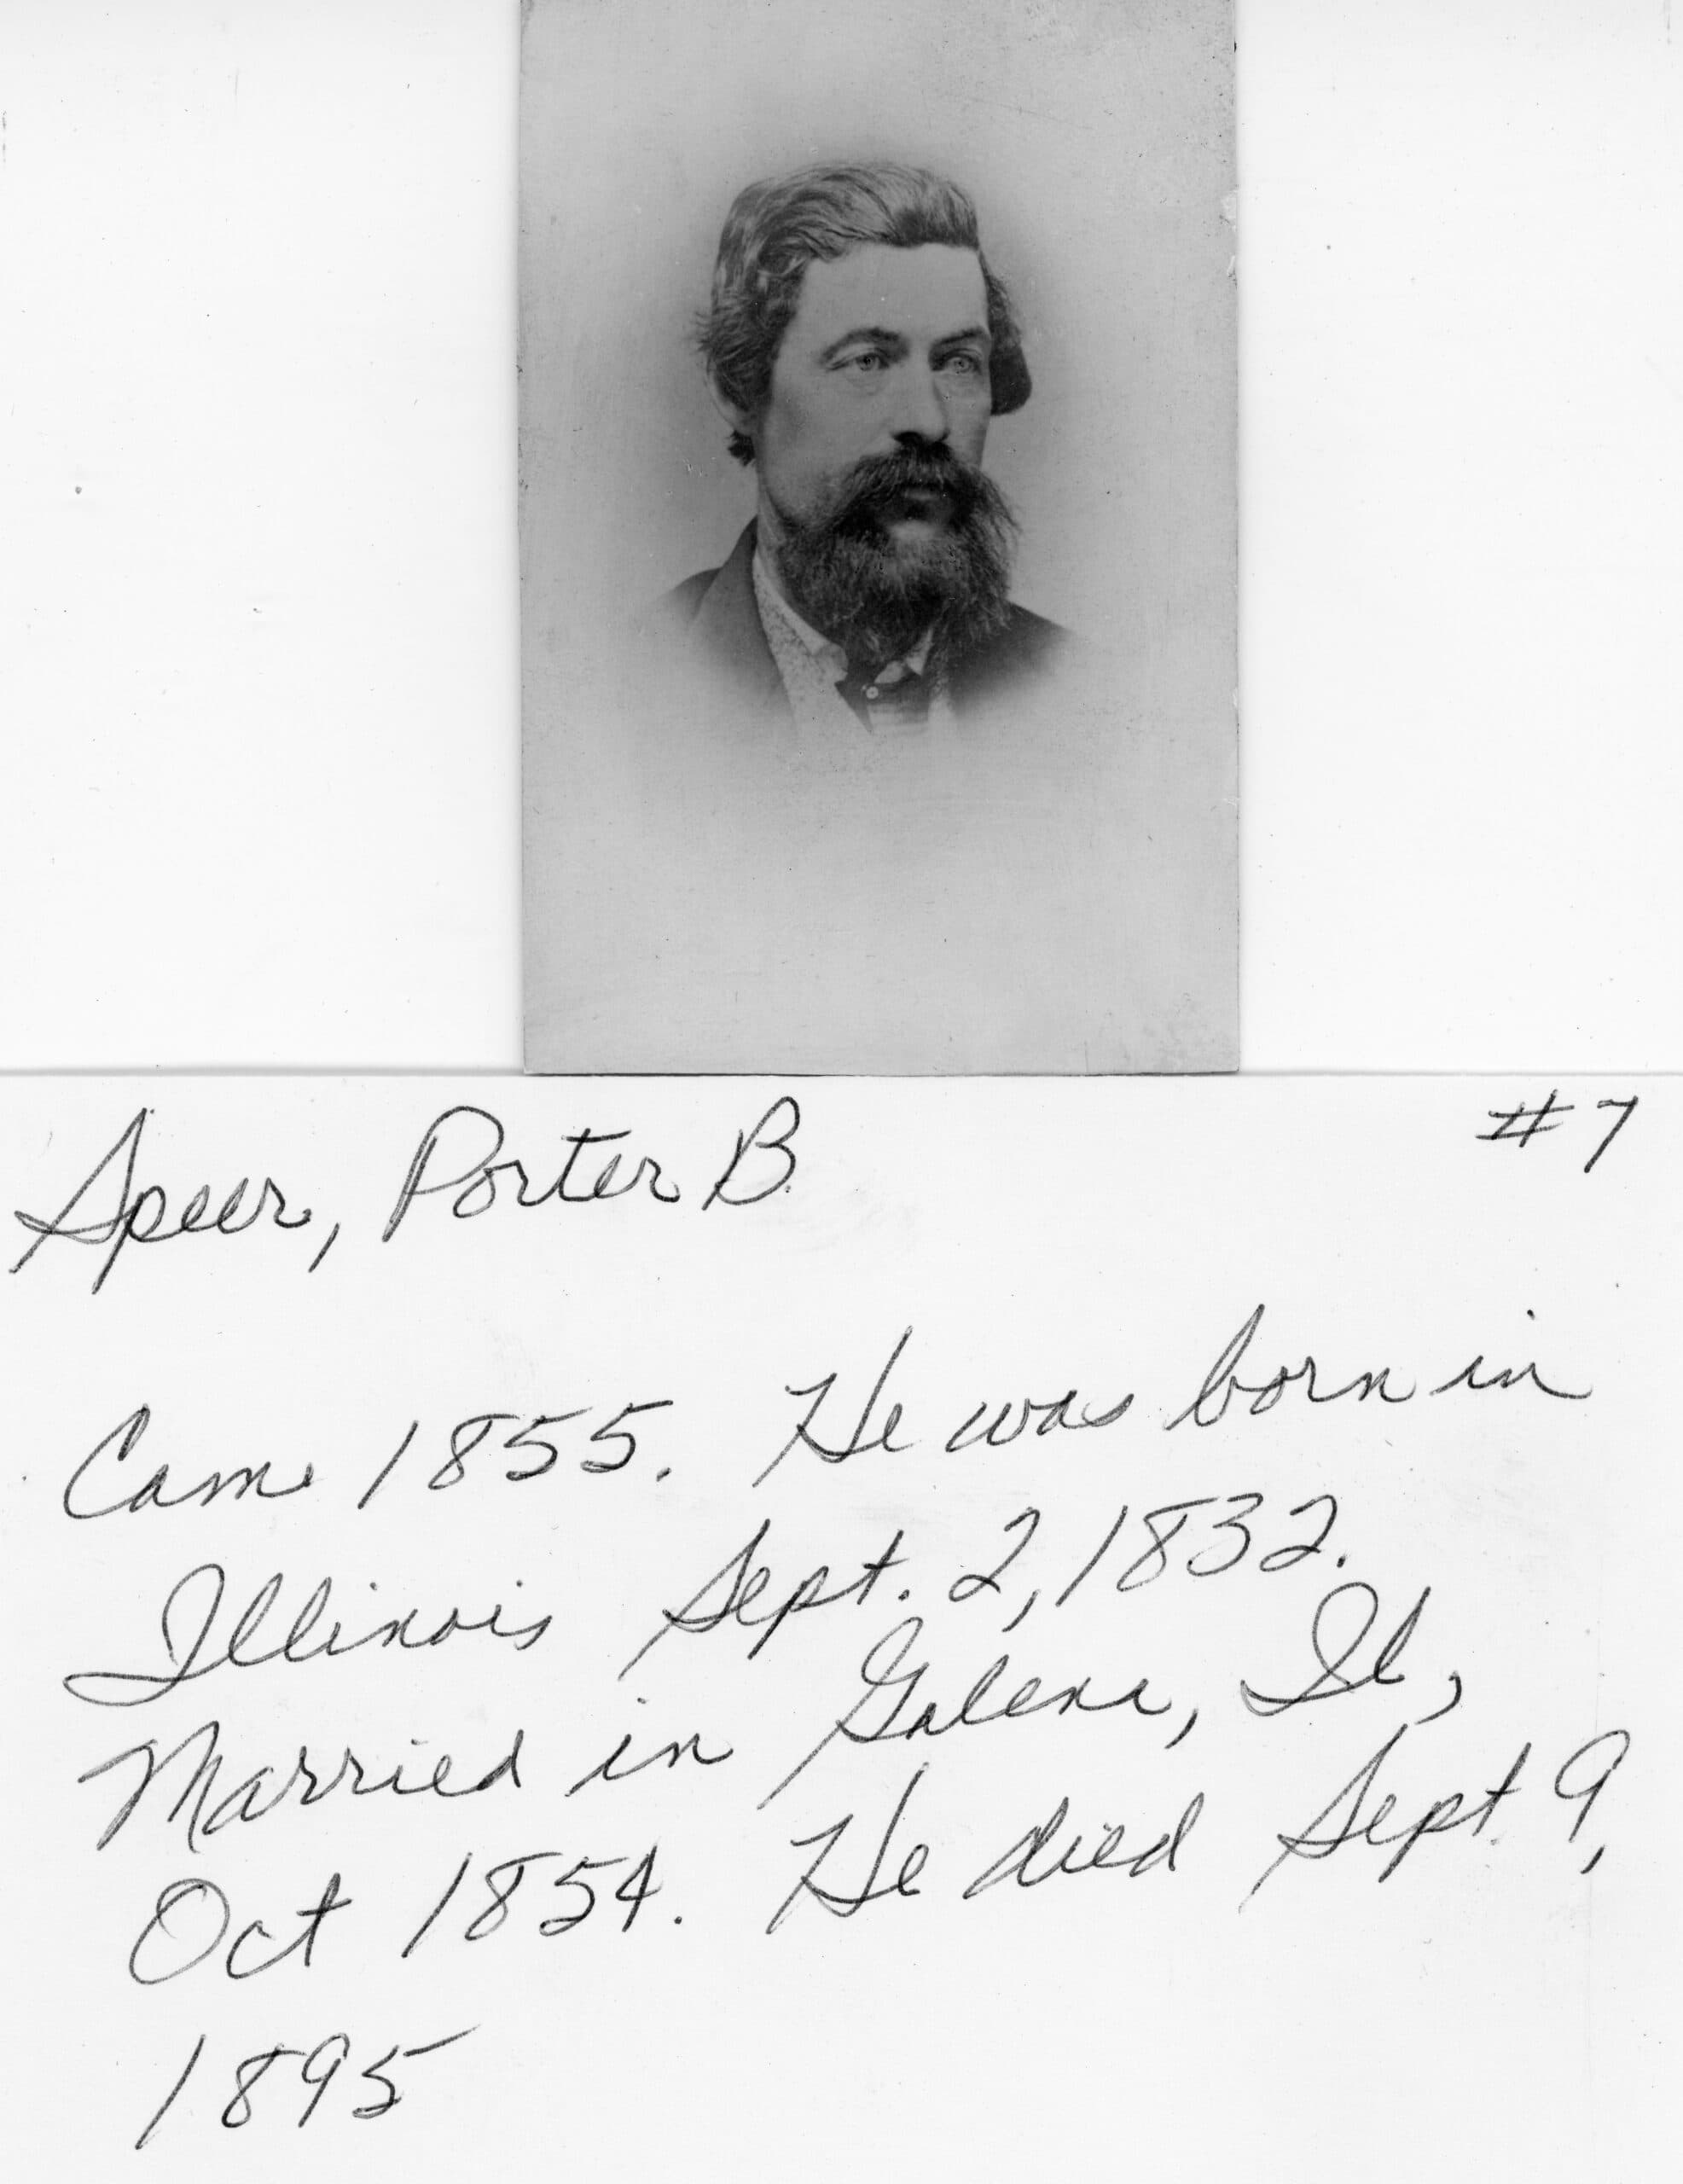 Speer, Porter B. #7
Came 1855. He was born in
Illinois Sept. 2, 1832.
Married in Galena, Il,
Oct 1854. He died Sept. 9,
1895